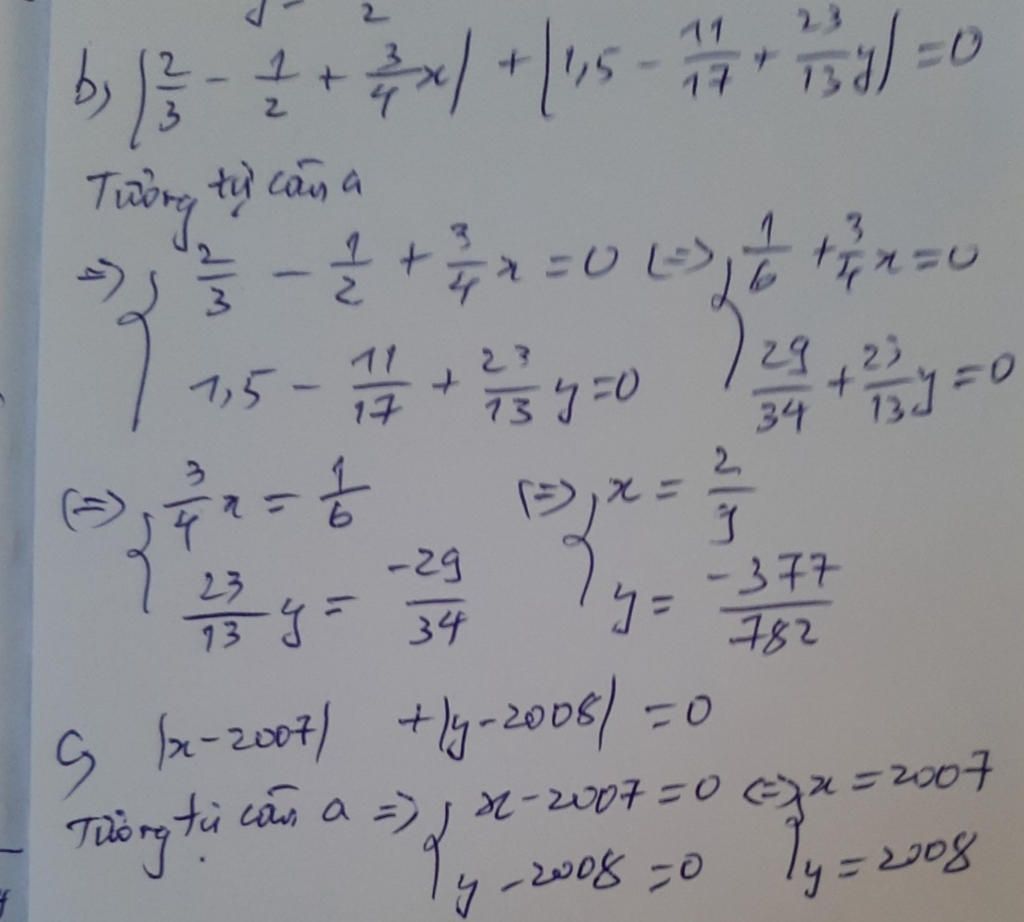 b, |2/3 - 1/2 + 3/4 x| + |1,5 - 11/17 + 23/13 y| = 0
Tương tự câu a
=> { 2/3 - 1/2 + 3/4 x = 0 (=> { 1/6 + 3/4 x = 0
1,5 - 11/17 + 23/13 y = 0 29/34 + 23/13 y = 0
(=> { 3/4 x = 1/6 (=> { x = 2/9
23/13 y = -29/34 y = -377/782
c, |x - 2007| + |y - 2008| = 0
Tương tự câu a => { x - 2007 = 0 (=> { x = 2007
y - 2008 = 0 y = 2008